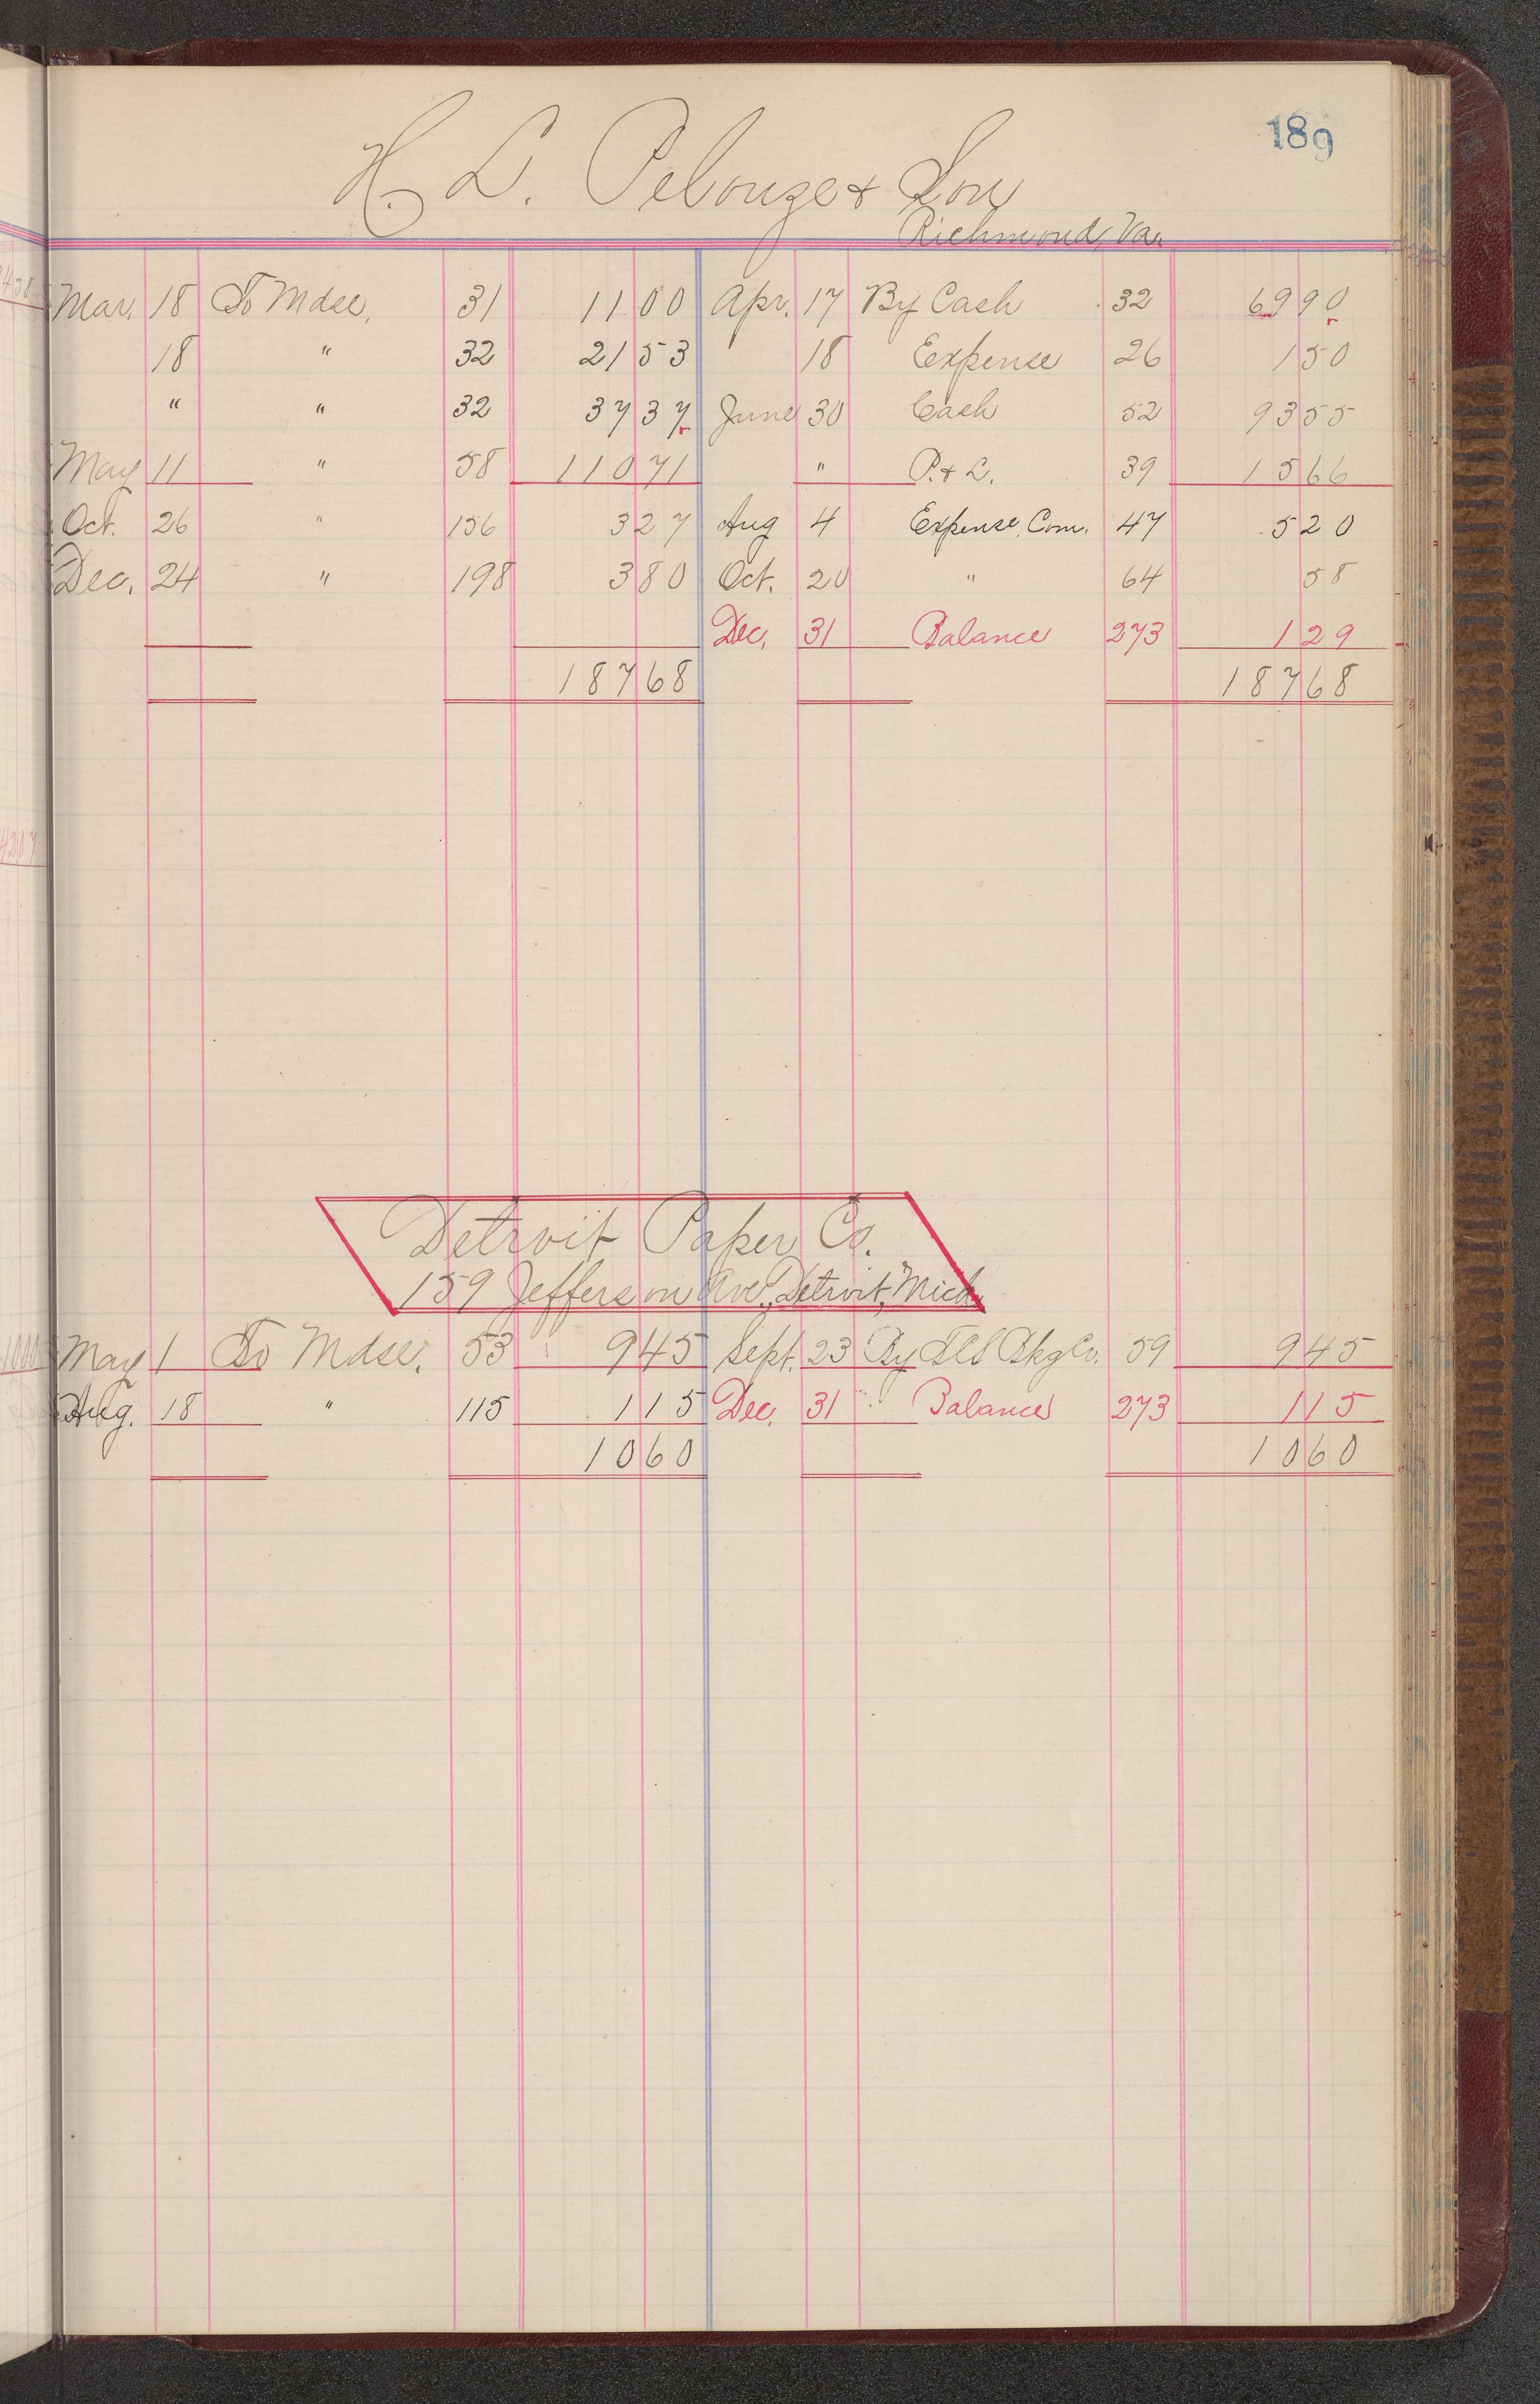 189
H. L. Pelouze & Son
Richmond, Va.
Mar. 18 To Mdse. 31 11 00 Apr. 17 By Cash 32 69 90
18 " 32 21 53 18 Expense 26 1 50
" " 32 37 37 June 30 Cash 52 93 55
May 11 " 58 110 71 " P. & L. 39 15 66
Oct. 26 " 156 3 27 Aug 4 Expense, Com. 47 5 20
Dec. 24 " 198 3 80 Oct. 20 " 64 58
Dec. 31 Balance 273 1 29
187 68 187 68
Detroit Paper Co.
159 Jefferson Ave., Detroit, Mich.
May 1 To Mdse. 53 9 45 Sept. 23 By Bkg Co. 59 9 45
Aug. 18 " 115 1 15 Dec. 31 Balance 273 1 15
10 60 10 60